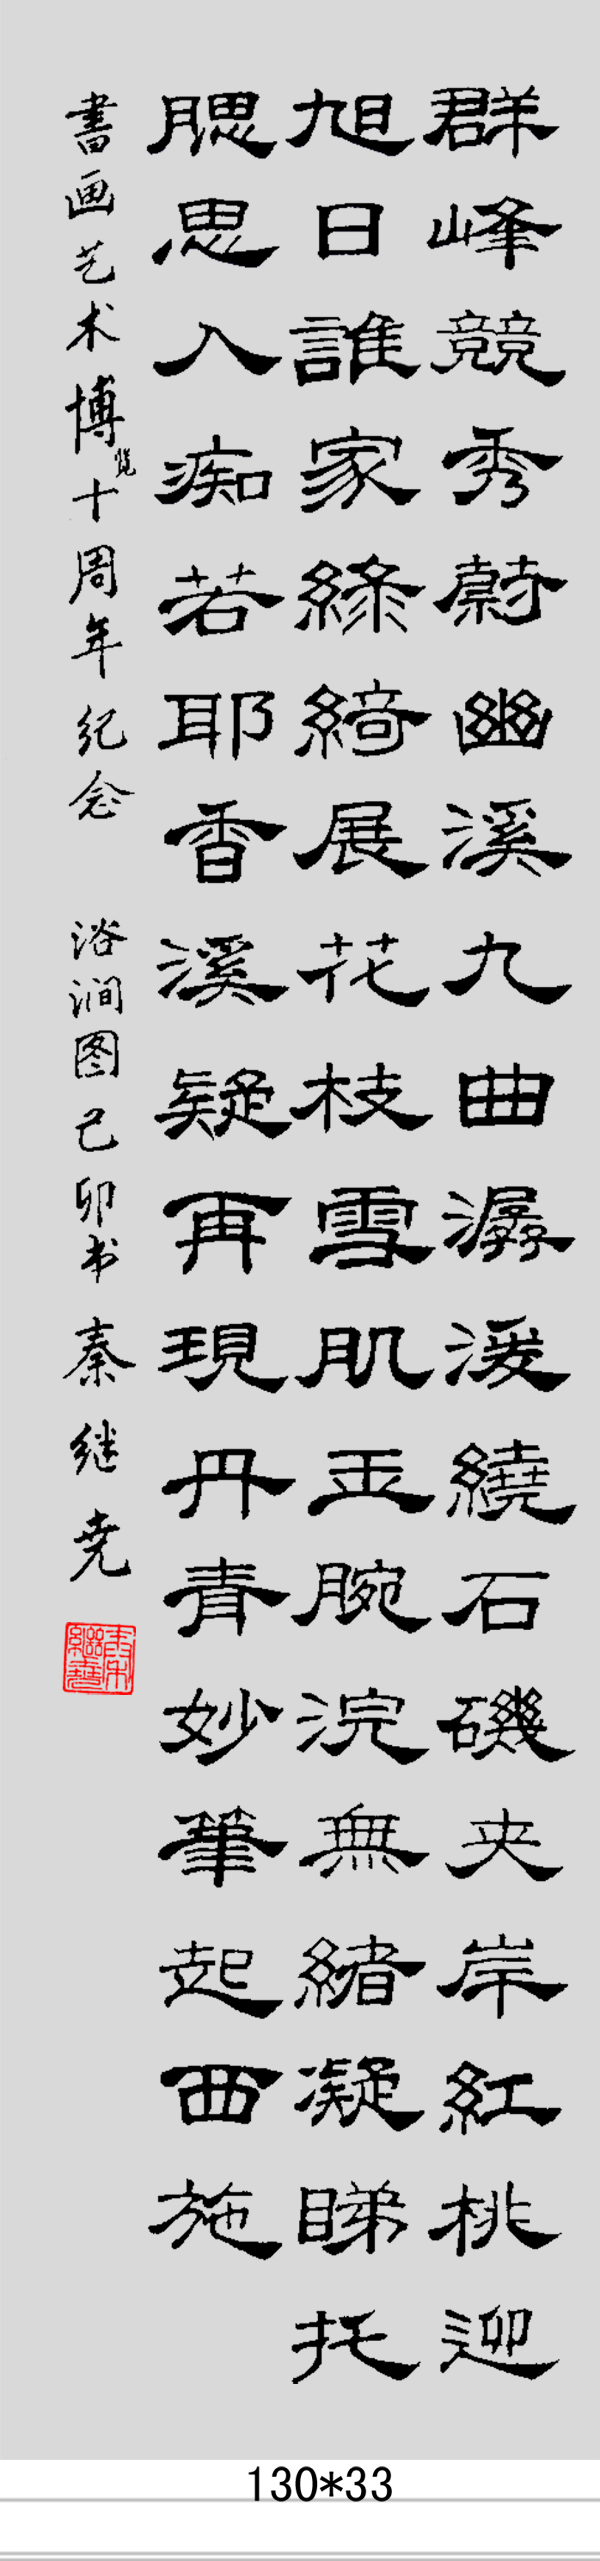 群峰競秀蔚幽溪九曲潺湲繞石磯夾岸紅桃迎
旭日誰家綠綺展花枝雪肌玉腕浣無緒凝睇托
腮思入痴若耶香溪疑再現丹青妙筆起西施
書画艺术博览十周年纪念 浴涧图己卯书秦继尧
130*33